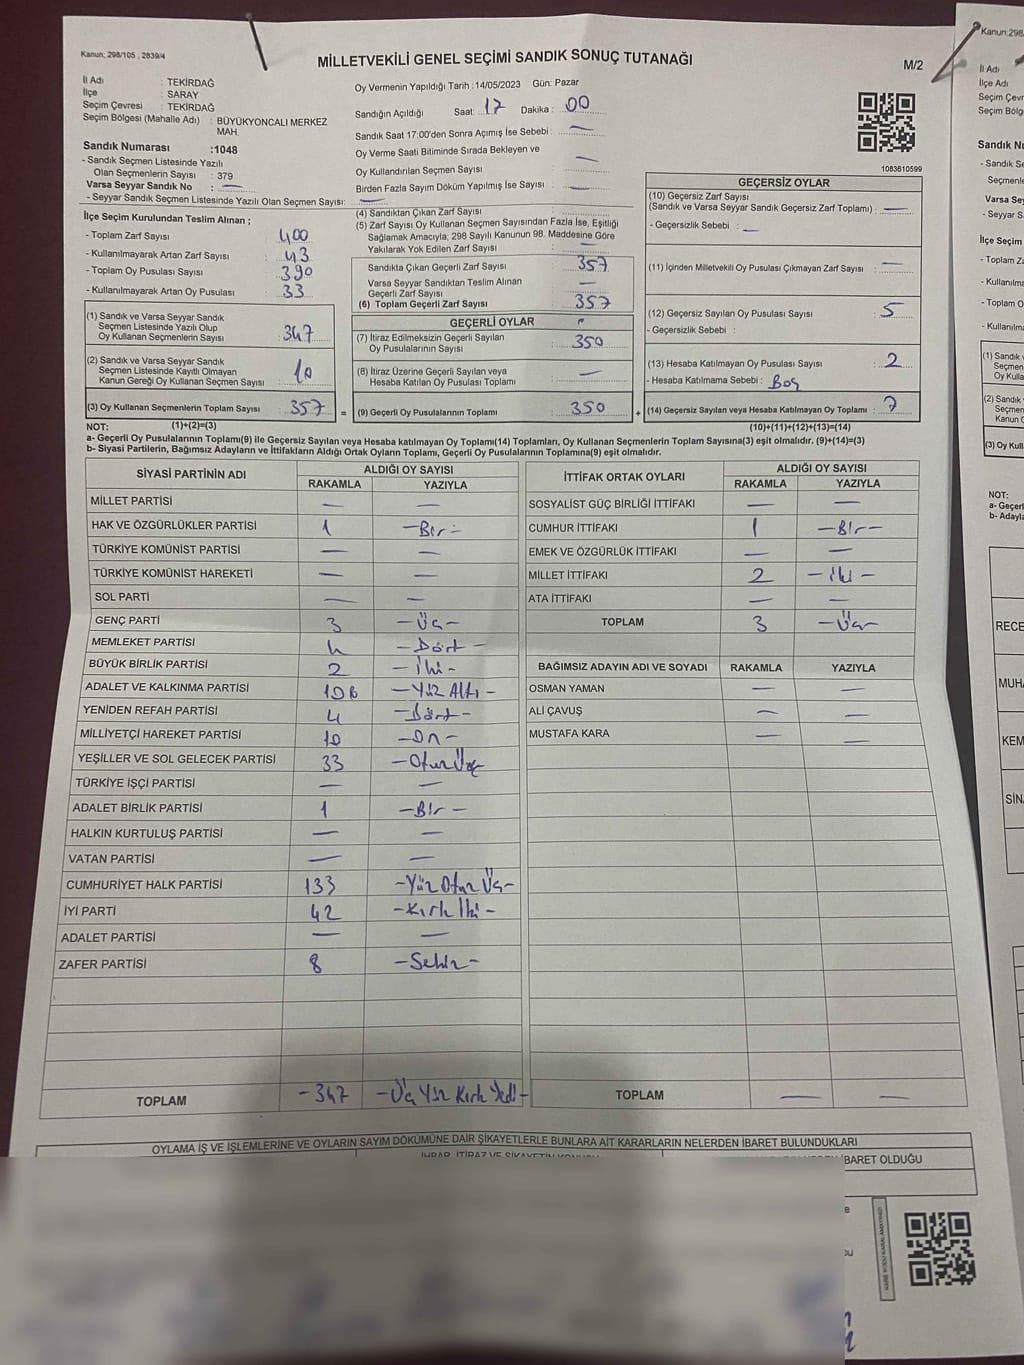 Kanun; 298/105 , 2839/4
MİLLETVEKİLİ GENEL SEÇİMİ SANDIK SONUÇ TUTANAĞI
M/2
İl Adı : TEKİRDAĞ
İlçe : SARAY
Seçim Çevresi : TEKİRDAĞ
Seçim Bölgesi (Mahalle Adı) : BÜYÜKYONCALI MERKEZ MAH.
Sandık Numarası :1048
- Sandık Seçmen Listesinde Yazılı
Olan Seçmenlerin Sayısı : 379
Varsa Seyyar Sandık No : —
- Seyyar Sandık Seçmen Listesinde Yazılı Olan Seçmen Sayısı: —
Oy Vermenin Yapıldığı Tarih :14/05/2023 Gün: Pazar
Sandığın Açıldığı Saat: 17 Dakika : 00
Sandık Saat 17:00'den Sonra Açımış İse Sebebi : —
Oy Verme Saati Bitiminde Sırada Bekleyen ve
Oy Kullandırılan Seçmen Sayısı : —
Birden Fazla Sayım Döküm Yapılmış İse Sayısı : —
1083610599
İlçe Seçim Kurulundan Teslim Alınan ;
- Toplam Zarf Sayısı : 400
- Kullanılmayarak Artan Zarf Sayısı : 43
- Toplam Oy Pusulası Sayısı : 390
- Kullanılmayarak Artan Oy Pusulası : 33
(1) Sandık ve Varsa Seyyar Sandık
Seçmen Listesinde Yazılı Olup
Oy Kullanan Seçmenlerin Sayısı : 347
(2) Sandık ve Varsa Seyyar Sandık
Seçmen Listesinde Kayıtlı Olmayan
Kanun Gereği Oy Kullanan Seçmen Sayısı : 10
(3) Oy Kullanan Seçmenlerin Toplam Sayısı : 357 =
(4) Sandıktan Çıkan Zarf Sayısı
(5) Zarf Sayısı Oy Kullanan Seçmen Sayısından Fazla İse, Eşitliği
Sağlamak Amacıyla, 298 Sayılı Kanunun 98. Maddesine Göre
Yakılarak Yok Edilen Zarf Sayısı : —
Sandıkta Çıkan Geçerli Zarf Sayısı : 357
Varsa Seyyar Sandıktan Teslim Alınan
Geçerli Zarf Sayısı : —
(6) Toplam Geçerli Zarf Sayısı : 357
GEÇERLİ OYLAR
(7) İtiraz Edilmeksizin Geçerli Sayılan
Oy Pusulalarının Sayısı : 350
(8) İtiraz Üzerine Geçerli Sayılan veya
Hesaba Katılan Oy Pusulası Toplamı : —
(9) Geçerli Oy Pusulalarının Toplamı : 350 +
GEÇERSİZ OYLAR
(10) Geçersiz Zarf Sayısı
(Sandık ve Varsa Seyyar Sandık Geçersiz Zarf Toplamı) : —
- Geçersizlik Sebebi : —
(11) İçinden Milletvekili Oy Pusulası Çıkmayan Zarf Sayısı : —
(12) Geçersiz Sayılan Oy Pusulası Sayısı : 5
- Geçersizlik Sebebi :
(13) Hesaba Katılmayan Oy Pusulası Sayısı : 2
- Hesaba Katılmama Sebebi : Boş
(14) Geçersiz Sayılan veya Hesaba Katılmayan Oy Toplamı : 7
NOT: (1)+(2)=(3) (10)+(11)+(12)+(13)=(14)
a- Geçerli Oy Pusulalarının Toplamı(9) ile Geçersiz Sayılan veya Hesaba katılmayan Oy Toplamı(14) Toplamları, Oy Kullanan Seçmenlerin Toplam Sayısına(3) eşit olmalıdır. (9)+(14)=(3)
b- Siyasi Partilerin, Bağımsız Adayların ve İttifakların Aldığı Ortak Oyların Toplamı, Geçerli Oy Pusulalarının Toplamına(9) eşit olmalıdır.
SİYASİ PARTİNİN ADI ALDIĞI OY SAYISI
RAKAMLA YAZIYLA
MİLLET PARTİSİ — —
HAK VE ÖZGÜRLÜKLER PARTİSİ 1 -Bir-
TÜRKİYE KOMÜNİST PARTİSİ — —
TÜRKİYE KOMÜNİST HAREKETİ — —
SOL PARTİ — —
GENÇ PARTİ 3 -Üç-
MEMLEKET PARTİSİ 4 -Dört-
BÜYÜK BİRLİK PARTİSİ 2 -İki-
ADALET VE KALKINMA PARTİSİ 106 -Yüz Altı-
YENİDEN REFAH PARTİSİ 4 -Dört-
MİLLİYETÇİ HAREKET PARTİSİ 10 -On-
YEŞİLLER VE SOL GELECEK PARTİSİ 33 -Otuz Üç
TÜRKİYE İŞÇİ PARTİSİ — —
ADALET BİRLİK PARTİSİ 1 -Bir-
HALKIN KURTULUŞ PARTİSİ — —
VATAN PARTİSİ — —
CUMHURİYET HALK PARTİSİ 133 -Yüz Otuz Üç-
İYİ PARTİ 42 -Kırk İki-
ADALET PARTİSİ — —
ZAFER PARTİSİ 8 -Sekiz-
TOPLAM -347 -Üç Yüz Kırk Yedi-
İTTİFAK ORTAK OYLARI ALDIĞI OY SAYISI
RAKAMLA YAZIYLA
SOSYALİST GÜÇ BİRLİĞİ İTTİFAKI — —
CUMHUR İTTİFAKI 1 -Bir-
EMEK VE ÖZGÜRLÜK İTTİFAKI — —
MİLLET İTTİFAKI 2 -İki-
ATA İTTİFAKI — —
TOPLAM 3 -Üç-
BAĞIMSIZ ADAYIN ADI VE SOYADI RAKAMLA YAZIYLA
OSMAN YAMAN — —
ALİ ÇAVUŞ — —
MUSTAFA KARA — —
TOPLAM — —
OYLAMA İŞ VE İŞLEMLERİNE VE OYLARIN SAYIM DÖKÜMÜNE DAİR ŞİKAYETLERLE BUNLARA AİT KARARLARIN NELERDEN İBARET BULUNDUKLARI
İBARET OLDUĞU
Kanun; 298
İl Adı
İlçe Adı
Seçim Çevr
Seçim Bölg
Sandık Nu
- Sandık Se
Seçmenle
Varsa Sey
- Seyyar S
İlçe Seçim
- Toplam Z
- Kullanılma
- Toplam O
- Kullanılm
(1) Sandık v
Seçmen
Oy Kulla
(2) Sandık
Seçmen
Kanun G
(3) Oy Kull
NOT:
a- Geçerl
b- Adayla
RECE
MUHA
KEM
SİN